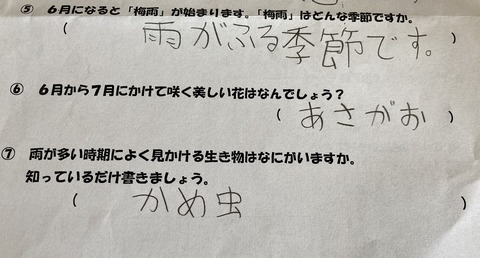 ⑤ 6月になると「梅雨」が始まります。「梅雨」はどんな季節ですか。
( 雨がふる季節です。 )
⑥ 6月から7月にかけて咲く美しい花はなんでしょう?
( あさがお )
⑦ 雨が多い時期によく見かける生き物はなにがいますか。
知っているだけ書きましょう。
( かめ虫 )